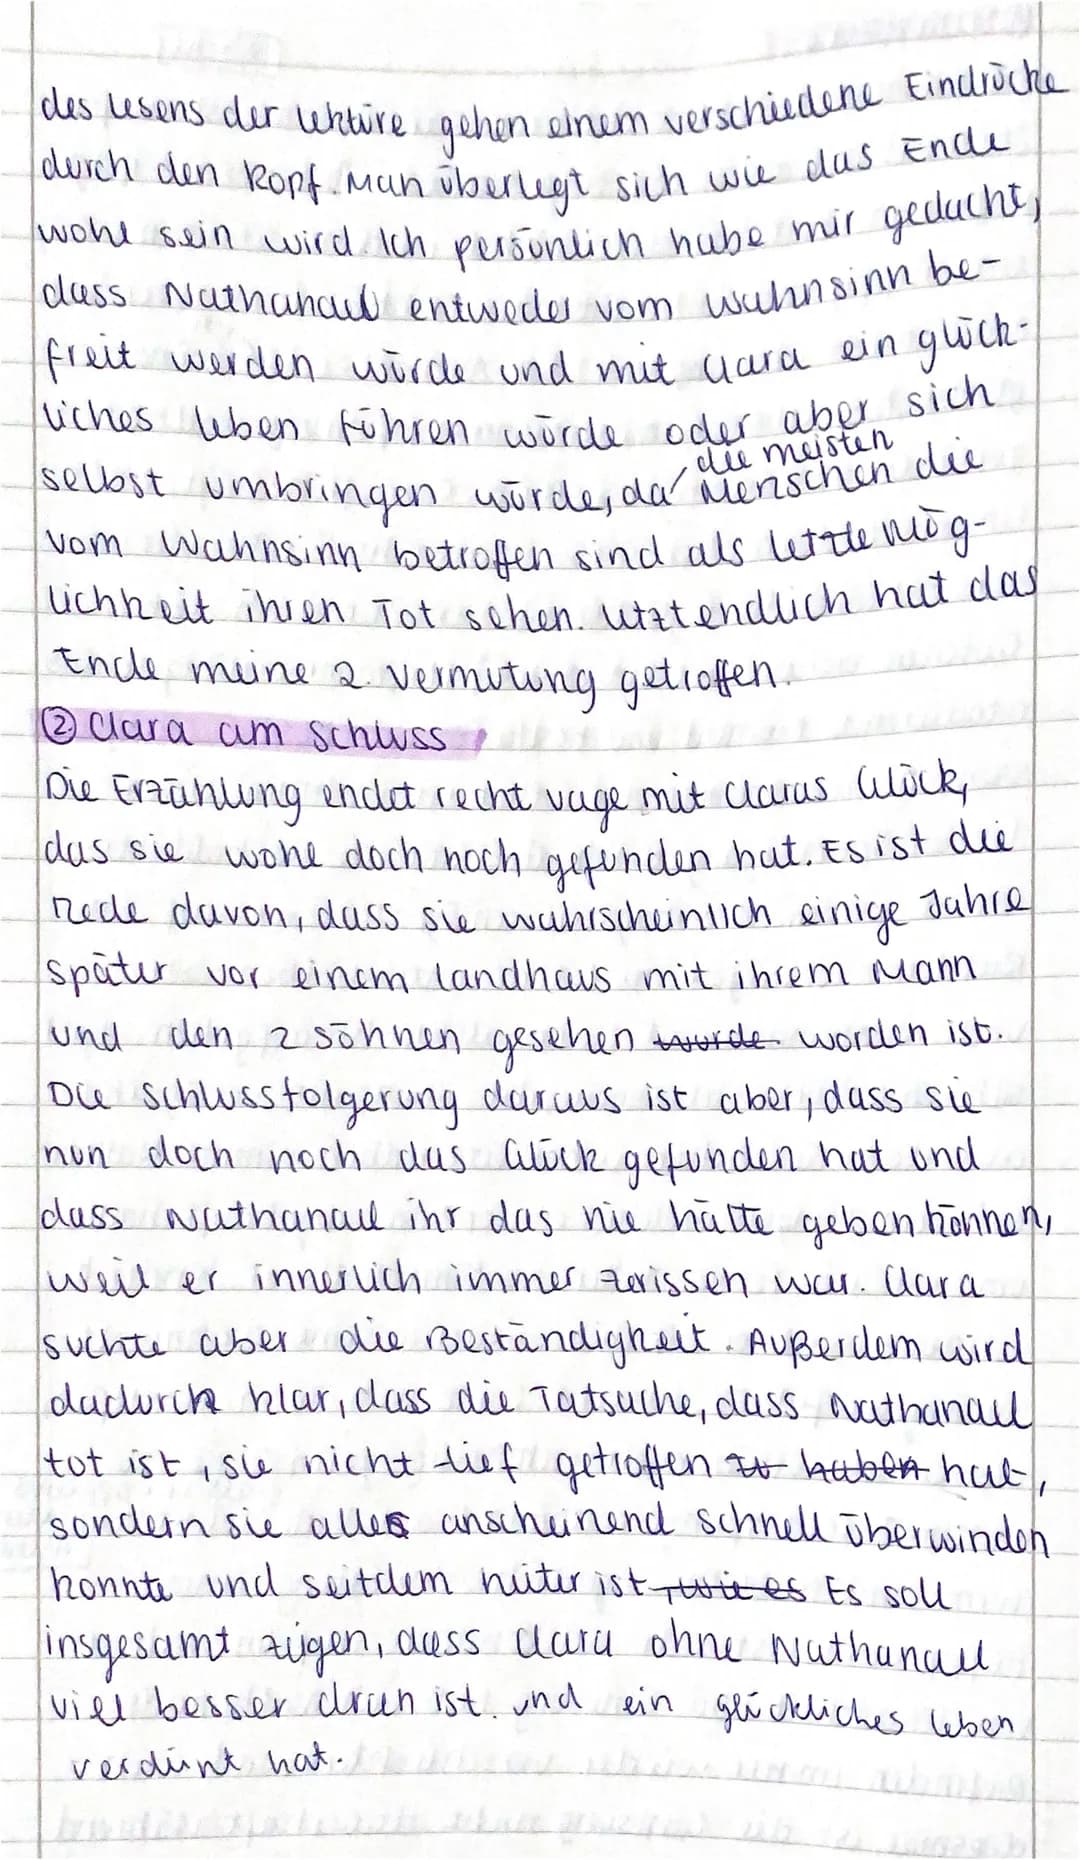 des Lesens der Lektüre gehen einem verschiedene Eindrücke
durch den Kopf. Man überlegt sich wie das Ende
wohl sein wird. Ich persönlich habe mir gedacht,
dass Nathanael entweder vom Wahnsinn be-
freit werden würde und mit Clara ein glück-
liches Leben führen würde oder aber sich
selbst umbringen würde, da die meisten Menschen die
vom Wahnsinn betroffen sind als letzte Mög-
lichkeit ihren Tot sehen. Letztendlich hat das
Ende meine 2. Vermutung getroffen.
② Clara am Schluss
Die Erzählung endet recht vage mit Claras Glück,
das sie wohl doch noch gefunden hat. Es ist die
Rede davon, dass sie wahrscheinlich einige Jahre
später vor einem Landhaus mit ihrem Mann
und den 2 Söhnen gesehen wurde. worden ist.
Die Schlussfolgerung daraus ist aber, dass sie
nun doch noch das Glück gefunden hat und
dass Nathanael ihr das nie hätte geben können,
weil er innerlich immer zerissen war. Clara
suchte aber die Beständigkeit. Außerdem wird
dadurch klar, dass die Tatsache, dass Nathanael
tot ist, sie nicht tief getroffen zu haben hat,
sondern sie alles anscheinend schnell überwinden
konnte und seitdem heiter ist, wie es Es soll
insgesamt zeigen, dass Clara ohne Nathanael
viel besser dran ist. und ein glückliches Leben
verdient hat.